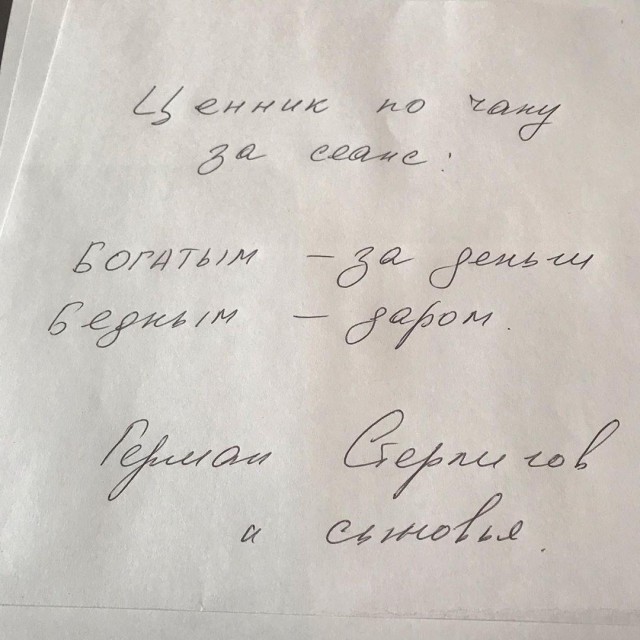 Ценник по чану
за сеанс:
Богатым – за деньги
Бедным – даром.
Герман Стерлигов
и сыновья.